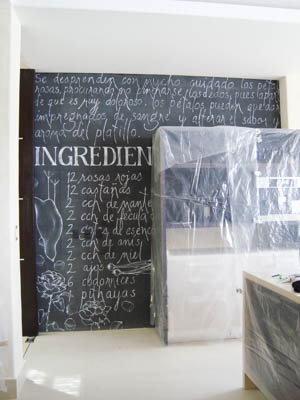 Se desprenden con mucho cuidado los pétalos
rosas, procurando no pincharse los dedos, pues
de que es muy doloroso, los pétalos pueden quedar
impregnados de sangre y alterar el sabor y
aroma del platillo.
INGREDIEN
12 rosas rojas
12 castañas
2 cch de mante
2 cch de fécula d
2 de esenc
2 cch de anís
2 cch de miel
2 ajos
6 codornices
4 pithayas